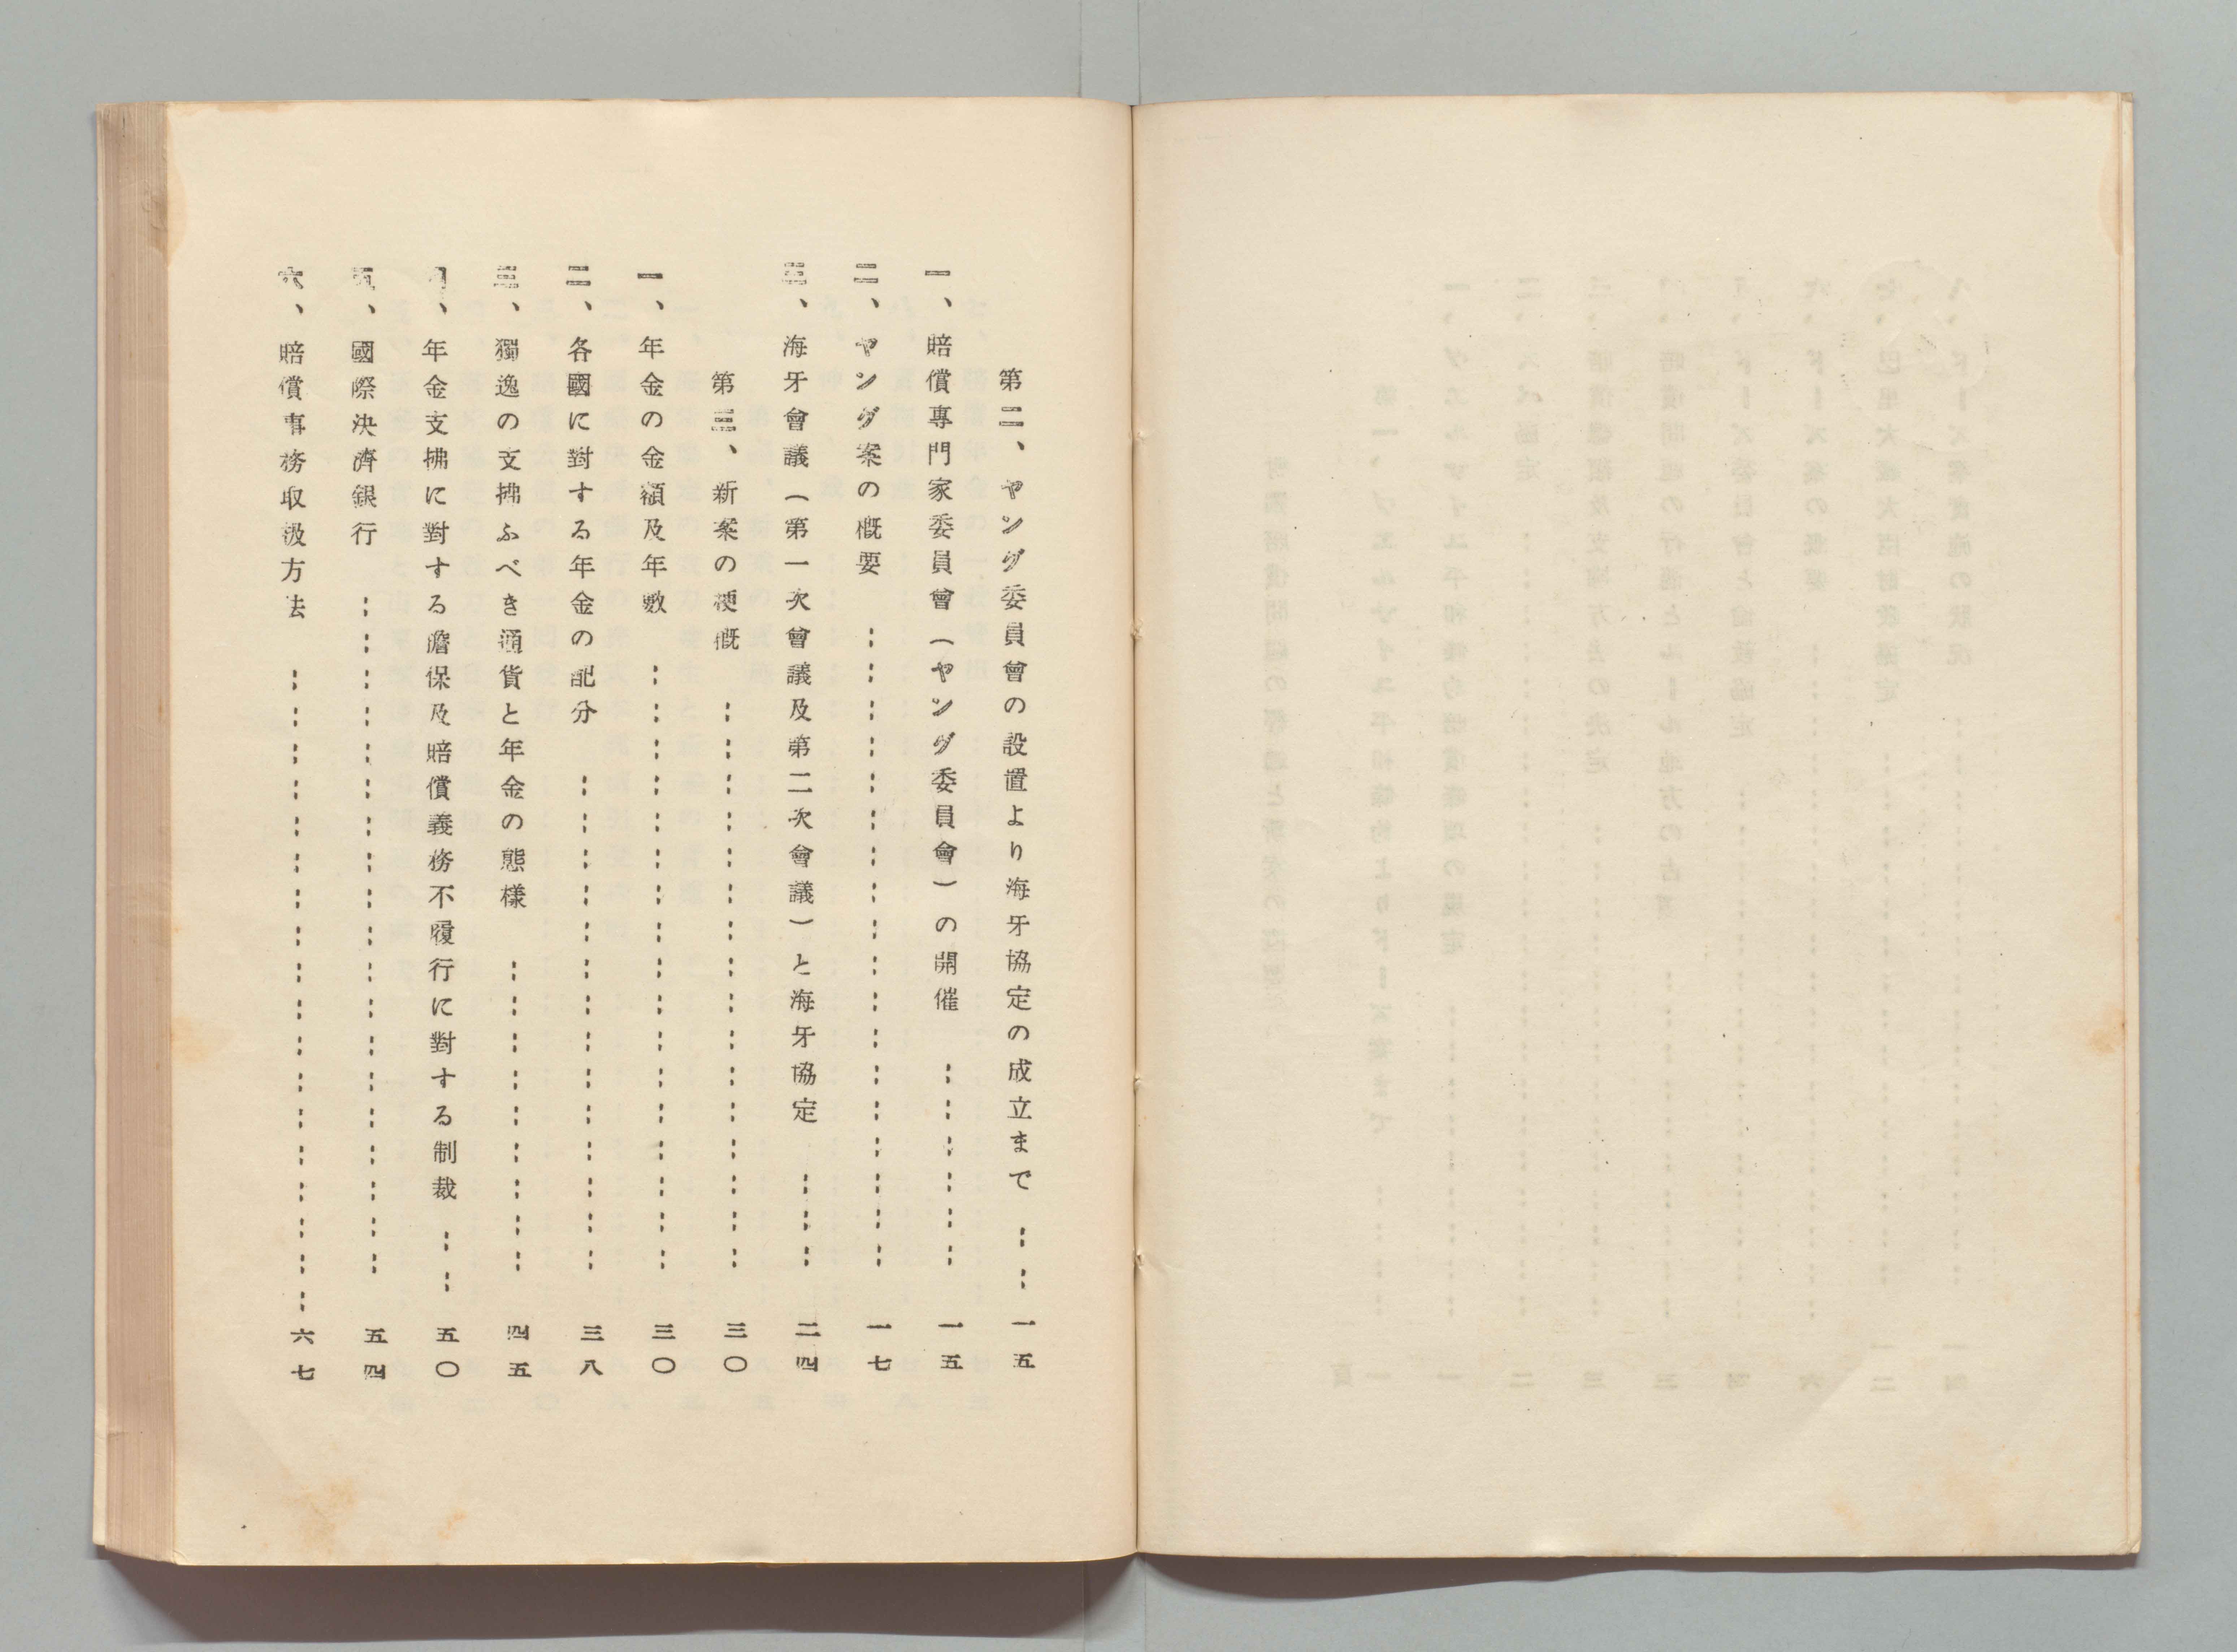 第二、ヤング委員會の設置より海牙協定の成立まで ……一五
一、賠償專門家委員會（ヤング委員會）の開催 ……一五
二、ヤング案の概要 ……一七
三、海牙會議（第一次會議及第二次會議）と海牙協定 ……二四
第三、新案の梗概 ……三〇
一、年金の金額及年數 ……三〇
二、各國に對する年金の配分 ……三八
三、獨逸の支拂ふべき通貨と年金の態樣 ……四五
四、年金支拂に對する擔保及賠償義務不履行に對する制裁 ……五〇
五、國際決濟銀行 ……五四
六、賠償事務取扱方法 ……六七